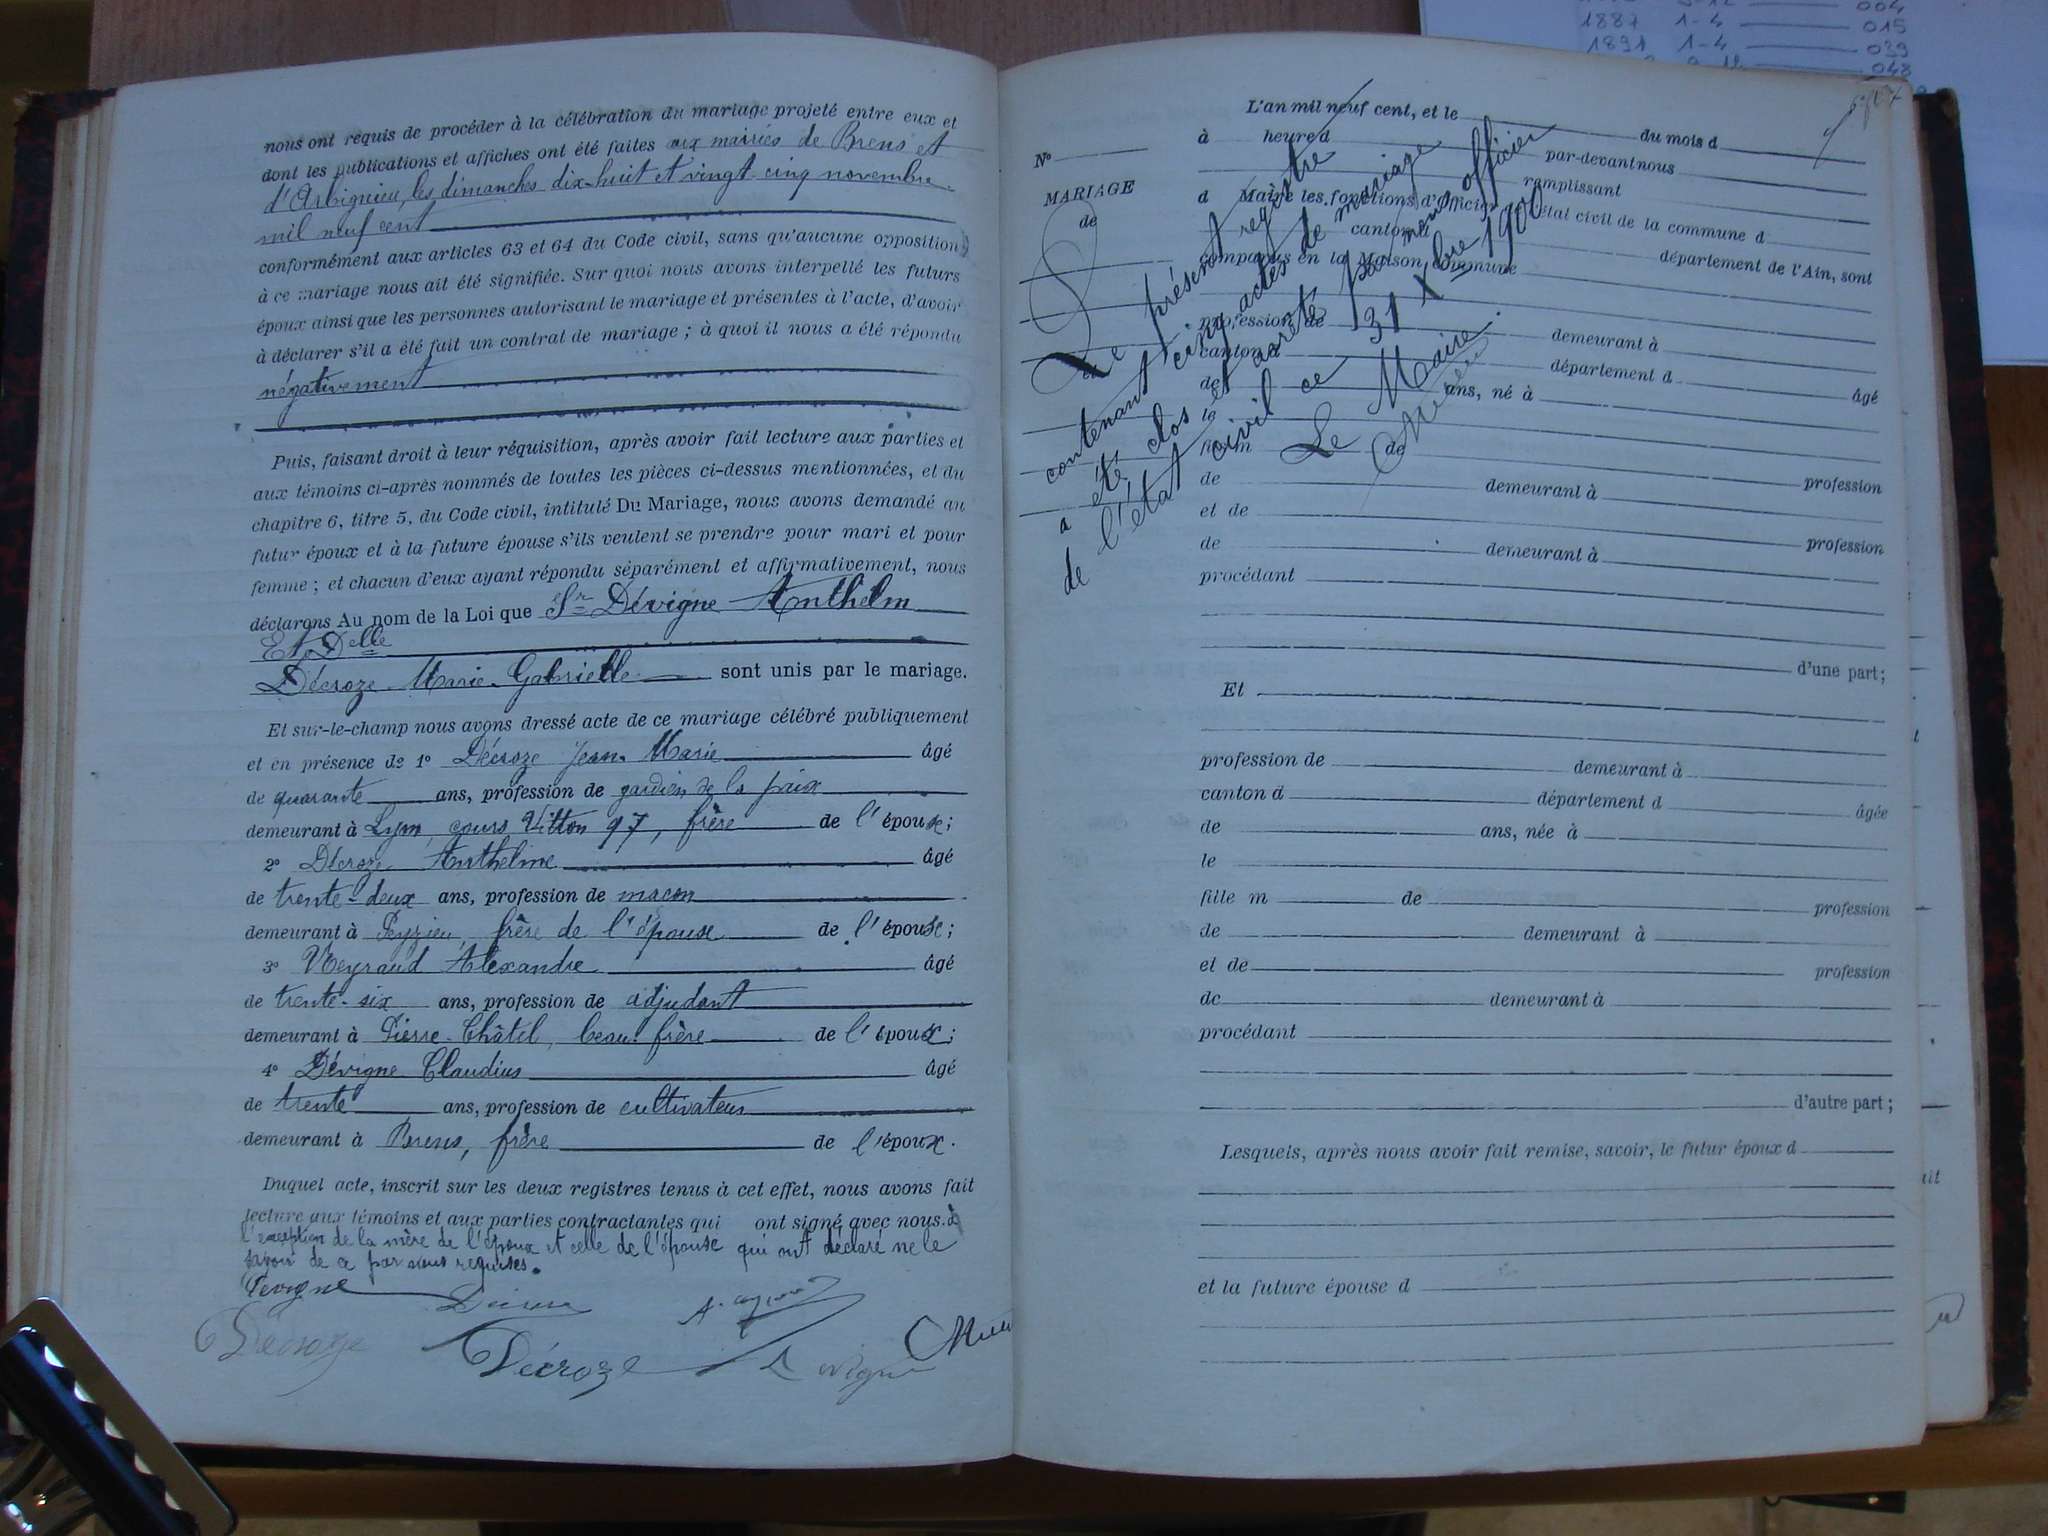 nous ont requis de procéder à la célébration du mariage projeté entre eux et
dont les publications et affiches ont été faites aux mairies de Brens et
d'Arbignieu, les dimanches dix-huit et vingt-cinq novembre
mil neuf cent
conformément aux articles 63 et 64 du Code civil, sans qu'aucune opposition
à ce mariage nous ait été signifiée. Sur quoi nous avons interpellé les futurs
époux ainsi que les personnes autorisant le mariage et présentes à l'acte, d'avoir
à déclarer s'il a été fait un contrat de mariage ; à quoi il nous a été répondu
négativement
Puis, faisant droit à leur réquisition, après avoir fait lecture aux parties et
aux témoins ci-après nommés de toutes les pièces ci-dessus mentionnées, et du
chapitre 6, titre 5, du Code civil, intitulé Du Mariage, nous avons demandé au
futur époux et à la future épouse s'ils veulent se prendre pour mari et pour
femme ; et chacun d'eux ayant répondu séparément et affirmativement, nous
déclarons Au nom de la Loi que Sr Dévigne Anthelm
Et Delle
Décroze Marie Gabrielle sont unis par le mariage.
Et sur-le-champ nous avons dressé acte de ce mariage célébré publiquement
et en présence de 1° Décroze Jean Marie âgé
de quarante ans, profession de gardien de la paix
demeurant à Lyon, cours Vitton 97, frère de l'épouse;
2° Décroze Anthelme âgé
de trente-deux ans, profession de maçon
demeurant à Peyzieu, frère de l'épouse de l'épouse;
3° Neyraud Alexandre âgé
de trente-six ans, profession de adjudant
demeurant à Pierre-Châtel, beau-frère de l'époux;
4° Dévigne Claudius âgé
de trente ans, profession de cultivateur
demeurant à Brens, frère de l'époux.
Duquel acte, inscrit sur les deux registres tenus à cet effet, nous avons fait
lecture aux témoins et aux parties contractantes qui ont signé avec nous à
l'exception de la mère de l'époux et celle de l'épouse qui ont déclaré ne le
savoir de ce par nous requises.
Devigne
Décroze
Décroze
Devigne
L'an mil neuf cent, et le du mois d
à heure d par-devant nous
N°
remplissant
MARIAGE
de
et
d Maire les fonctions d'officier de l'état civil de la commune d
canton d département de l'Ain, sont
comparus en la Maison commune
profession de demeurant à
canton d département d âgé
de ans, né à
le
fils m de profession
de demeurant à
et de profession
de demeurant à
procédant
d'une part;
Le présent registre
contenant cinq actes de mariage
a été clos et arrêté par nous officier
de l'état civil ce 31 Xbre 1900
Le Maire.
Et
profession de demeurant à
canton d département d âgée
de ans, née à
le
fille m de profession
de demeurant à
et de profession
de demeurant à
procédant
d'autre part;
Lesquels, après nous avoir fait remise, savoir, le futur époux d
et la future épouse d
1887 1-4 015
1891 1-4 039
048